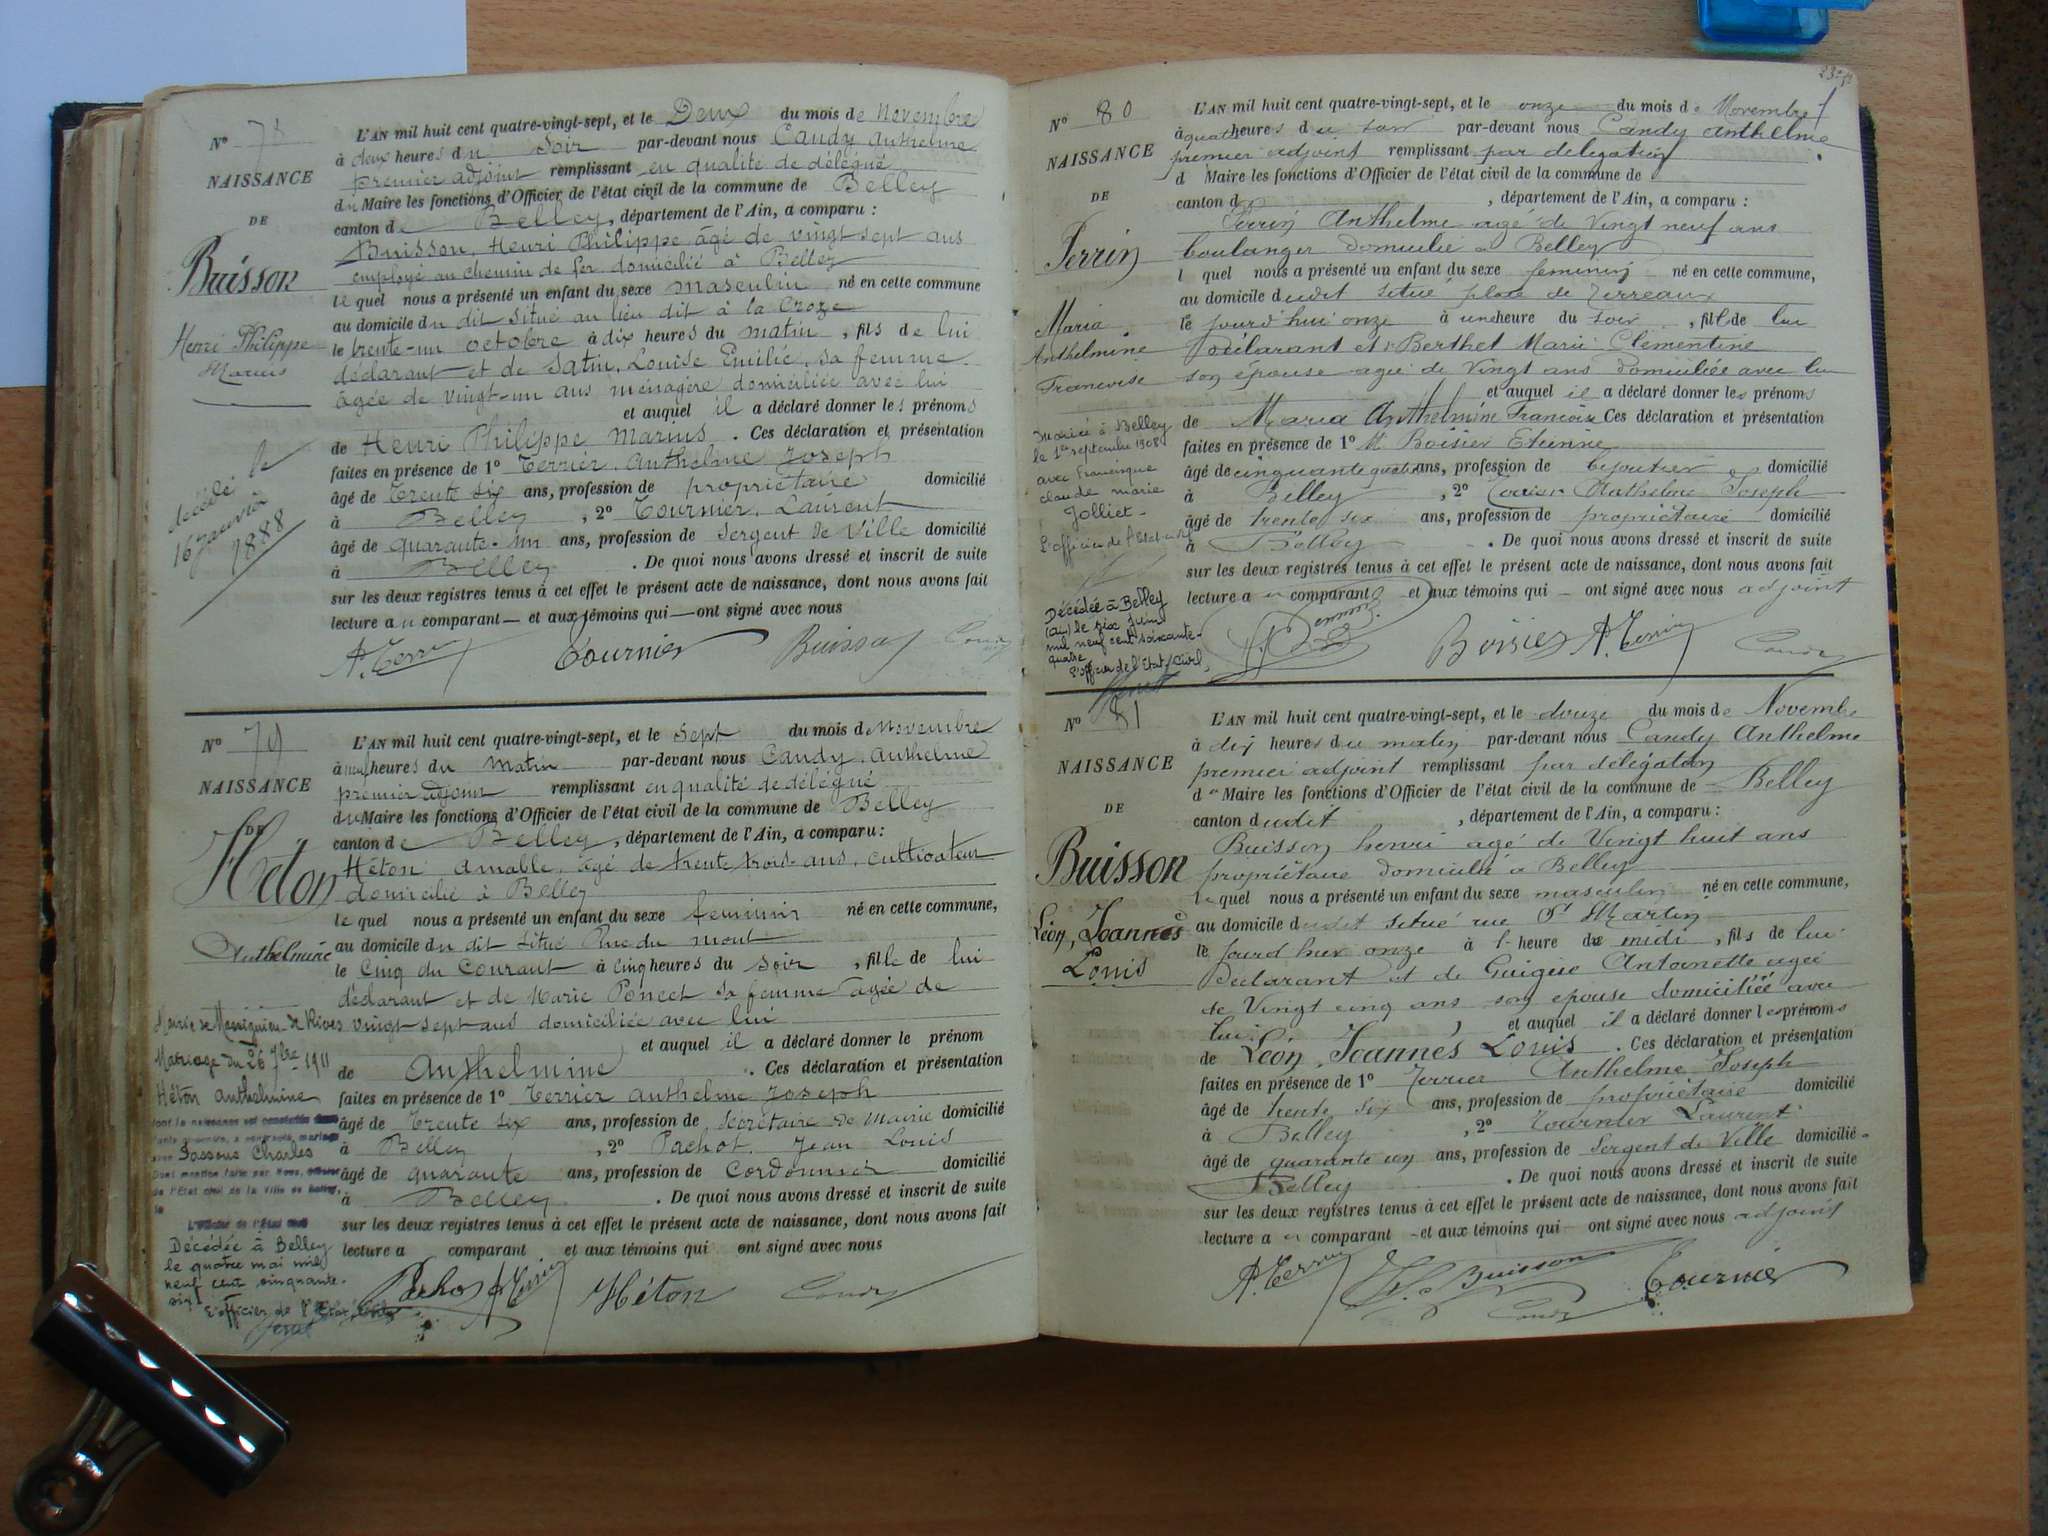 N° 78
NAISSANCE
DE
Buisson
Henri Philippe
Marius
décédé le
16 janvier
1888
L'AN mil huit cent quatre-vingt-sept, et le Deux du mois de Novembre
à deux heures du Soir par-devant nous Candy Anthelme
premier adjoint remplissant en qualité de délégué
du Maire les fonctions d'Officier de l'état civil de la commune de Belley
canton de Belley, département de l'Ain, a comparu :
Buisson, Henri Philippe âgé de vingt sept ans
employé au chemin de fer domicilié à Belley
le quel nous a présenté un enfant du sexe masculin né en cette commune
au domicile du dit situé au lieu dit à la Croze
le trente-un octobre à dix heures du matin, fils de lui
déclarant et de Satin, Louise Emilie, sa femme
âgée de vingt-un ans ménagère domiciliée avec lui
et auquel il a déclaré donner les prénoms
de Henri Philippe Marius. Ces déclaration et présentation
faites en présence de 1° Terrier, Anthelme Joseph
âgé de trente six ans, profession de propriétaire domicilié
à Belley, 2° Tournier, Laurent
âgé de quarante-un ans, profession de Sergent de Ville domicilié
à Belley. De quoi nous avons dressé et inscrit de suite
sur les deux registres tenus à cet effet le présent acte de naissance, dont nous avons fait
lecture au comparant — et aux témoins qui — ont signé avec nous
A. Terrier Tournier Buisson Candy
N° 79
NAISSANCE
DE
Héton
Anthelmine
Mairie de Massignieu-de-Rives
Mariage du 26 7bre 1911
Héton Anthelmine
dont la naissance est constatée dans
avec Passons Charles
de l'Etat civil de la Ville de Belley,
L'Officier de l'Etat civil
Décédée à Belley
le quatre mai mil
neuf cent cinquante-
six
L'officier de l'Etat Civil
L'AN mil huit cent quatre-vingt-sept, et le Sept du mois de Novembre
à neuf heures du Matin par-devant nous Candy, Anthelme
premier adjoint remplissant en qualité de délégué
du Maire les fonctions d'Officier de l'état civil de la commune de Belley
canton de Belley, département de l'Ain, a comparu :
Héton Amable, âgé de trente trois ans, cultivateur
domicilié à Belley
le quel nous a présenté un enfant du sexe féminin né en cette commune,
au domicile du dit situé Rue du mont
le Cinq du Courant à cinq heures du Soir, fille de lui
déclarant et de Marie Poncet sa femme âgée de
vingt sept ans domiciliée avec lui
et auquel il a déclaré donner le prénom
de Anthelmine. Ces déclaration et présentation
faites en présence de 1° Terrier Anthelme Joseph
âgé de trente six ans, profession de Secrétaire de Mairie domicilié
à Belley, 2° Pachot, Jean Louis
âgé de quarante ans, profession de Cordonnier domicilié
à Belley. De quoi nous avons dressé et inscrit de suite
sur les deux registres tenus à cet effet le présent acte de naissance, dont nous avons fait
lecture a comparant et aux témoins qui ont signé avec nous
Pachot A. Terrier Héton Candy
N° 80
NAISSANCE
DE
Perrin
Maria
Anthelmine
Françoise
Mariée à Belley
le 1er septembre 1908
avec Francisque
claude marie
Jolliet-
L'officier de l'Etat civil
Décédée à Belley
(Ain) le six juin
mil neuf cent soixante-
quatre
L'officier de l'Etat Civil,
L'AN mil huit cent quatre-vingt-sept, et le onze du mois de Novembre
à quatre heures du soir par-devant nous Candy Anthelme
premier adjoint remplissant par délégation
d Maire les fonctions d'Officier de l'état civil de la commune de
canton d , département de l'Ain, a comparu :
Perrin Anthelme agé de Vingt neuf ans
boulanger domicilié à Belley
l quel nous a présenté un enfant du sexe feminin né en cette commune,
au domicile dudit situé place de Terreaux
le jourd'hui onze à une heure du soir, fille de lui
déclarant et de Berthet Marie Clementine
son épouse agée de Vingt ans domiciliée avec lui
et auquel il a déclaré donner les prénoms
de Maria Anthelmine Françoise Ces déclaration et présentation
faites en présence de 1° M. Boisier Etienne
âgé de cinquante quatre ans, profession de bijoutier domicilié
à Belley, 2° Terrier Anthelme Joseph
âgé de trente six ans, profession de propriétaire domicilié
à Belley. De quoi nous avons dressé et inscrit de suite
sur les deux registres tenus à cet effet le présent acte de naissance, dont nous avons fait
lecture au comparant et aux témoins qui — ont signé avec nous adjoint
Boisier A. Terrier Candy
N° 81
NAISSANCE
DE
Buisson
Léon, Joannès
Louis
L'AN mil huit cent quatre-vingt-sept, et le douze du mois de Novembre
à dix heures du matin par-devant nous Candy Anthelme
premier adjoint remplissant par délégation
du Maire les fonctions d'Officier de l'état civil de la commune de Belley
canton dudit, département de l'Ain, a comparu :
Buisson henri agé de Vingt huit ans
propriétaire domicilié à Belley
le quel nous a présenté un enfant du sexe masculin né en cette commune,
au domicile dudit situé rue St Martin
le jourd hui onze à l heure de midi, fils de lui
déclarant et de Guigue Antoinette agée
de Vingt cinq ans son épouse domiciliée avec
lui, et auquel il a déclaré donner les prénoms
de Léon, Joannès Louis. Ces déclaration et présentation
faites en présence de 1° Terrier Anthelme Joseph
âgé de trente six ans, profession de propriétaire domicilié
à Belley, 2° Tournier Laurent
âgé de quarante un ans, profession de Sergent de Ville domicilié
Belley. De quoi nous avons dressé et inscrit de suite
sur les deux registres tenus à cet effet le présent acte de naissance, dont nous avons fait
lecture au comparant — et aux témoins qui — ont signé avec nous adjoint
A. Terrier Buisson Tournier
Candy